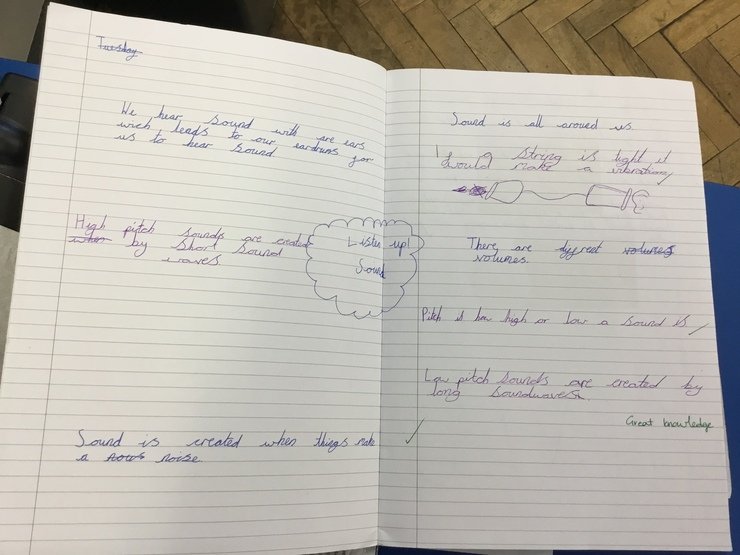 Tuesday
We hear sound with are ears
wich leads to our eardruns for
us to hear sound.
High pitch sounds are created
when by short sound
waves.
Listen up!
Sound
Sound is created when things make
a nows noise.
Sound is all around us.
a string is tight it
would make a vibration
There are diffreet volumes
volumes.
Pitch is how high or low a sound is
Low pitch sounds are created by
long soundwaves.
Great knowledge